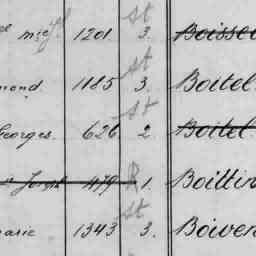 mie 1201 st 3. Boisse
mond. 1185 st 3. Boitel
Georges. 626 st 2 Boitel
Joseph 479 R 1. Boittin
marie 1343 st 3. Boiven